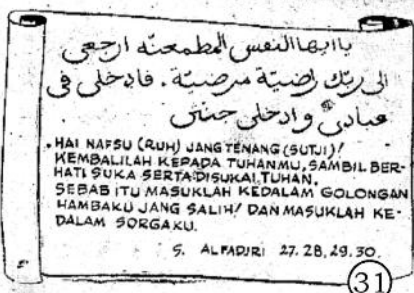 ياايهاالنفس المطمعنّه ارجعى
الى ربّك راضيّة مرضيّة . فادخلى فى
عبادى وادخلى جنتى
. HAI NAFSU (RUH) JANG TENANG (SUTJI)!
KEMBALILAH KEPADA TUHANMU, SAMBIL BER-
HATI SUKA SERTA DISUKAI TUHAN.
SEBAB ITU MASUKLAH KEDALAM GOLONGAN
HAMBAKU JANG SALIH! DAN MASUKLAH KE-
DALAM SORGAKU.
S. ALFADJRI 27.28,29.30.
31